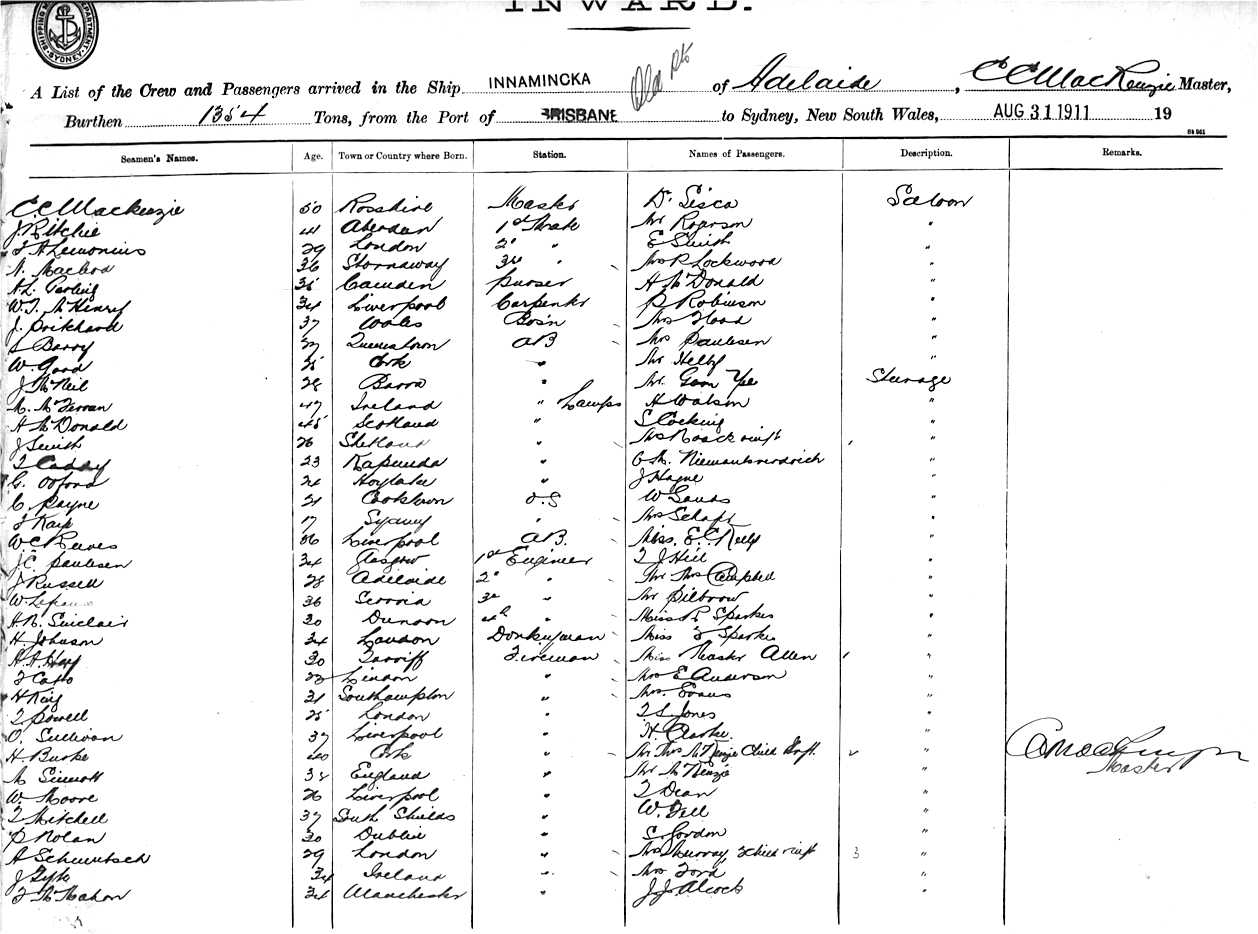 INWARD.
SHIPPING DEPARTMENT SYDNEY
A List of the Crew and Passengers arrived in the Ship INNAMINCKA of Adelaide, C C MacKenzie Master,
Burthen 1354 Tons, from the Port of BRISBANE to Sydney, New South Wales, AUG 31 1911 19
Seamen's Names. Age. Town or Country where Born. Station. Names of Passengers. Description. Remarks.
C. C. Mackenzie 50 Rosshire Master Dr Sisca Saloon
J. Ritchie 41 Aberdeen 1st Mate Mr "
29 London 2d " E Smith "
N. Macleod 36 Stornaway 3rd " Mrs R Lockwood "
Camden Purser H McDonald "
W. J. McHenry 34 Liverpool Carpenter P Robinson "
J. Prichard 37 Wales Bosn Mrs Hood "
S Barry 27 Queenstown AB Mrs Paulsen "
W. Good Cork " Mr Helby "
J McNeil 28 Barra " Mr Gum Yee Steerage
47 Ireland " Lamps H Watson "
H McDonald 45 Scotland " S Cocking "
J Smith 26 Shetland " "
T Caddy 23 Kapunda " "
G. Oxford 24 Hoylake " J Hayne "
C. Payne 21 Cooktown O.S W Sands "
17 Sydney " Mrs "
W. C Reeves Liverpool AB. Miss. E. C Kelly "
J. C. Paulsen 34 Glasgow 1st Engineer T J Hill "
J Russell 28 Adelaide 2d " Mr Mrs Campbell "
36 3rd " Mr Pilbrow "
H. R. Sinclair 30 Dunoon 4th " Miss R Sparkes "
H. Johnson 34 London Donkeyman Miss Sparkes "
A. A. Hay 30 Fireman Miss Master Allen "
London " Mrs E Anderson "
H King 31 Southampton " Mrs Evans "
T Powell 25 London " T S Jones "
O. Sullivan 37 Liverpool " H. Clarke. "
H. Burke 40 Cork " Mr Mrs McKenzie Child "
England " Mr McKenzie " Master
W. Moore 26 Liverpool " T Dean "
T Mitchell 37 South Shields " W. Fell "
P Nolan 30 Dublin " S. Gordon "
29 London " Mrs Murray, 3 "
34 Ireland " Mrs Ford "
T McMahon 34 Manchester " J. J. Alcock "